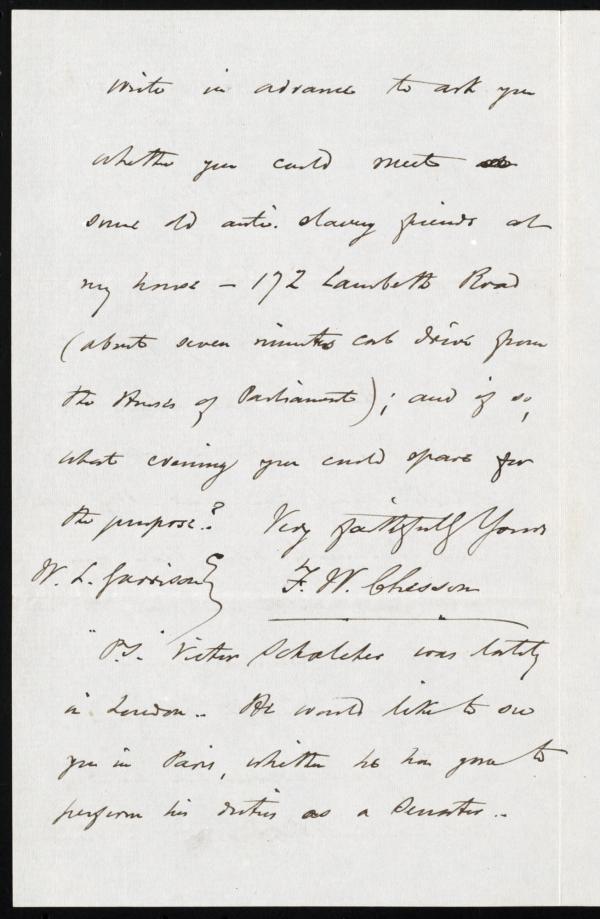 write in advance to ask you
whether you could meet
some old anti-slavery friends at
my house – 172 Lambeth Road
(about seven minutes cab drive from
the Houses of Parliament); and if so,
what evening you could spare for
the purpose? Very faithfully Yours
W. L. Garrison F. W. Chesson
"P.S." Victor Schœlcher was lately
in London.. He would like to see
you in Paris, whither he has gone to
perform his duties as a Senator..